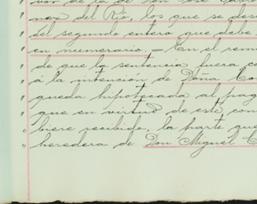 nex del Rio, los que se des
del segundo entero que debe
en numerario. - En el rem
de que la sentencia fuera co
á la intención de Doña Co
queda hipotecada al pag
que en virtud de este con
biere recibido, la parte que
heredera de Don Miguel C